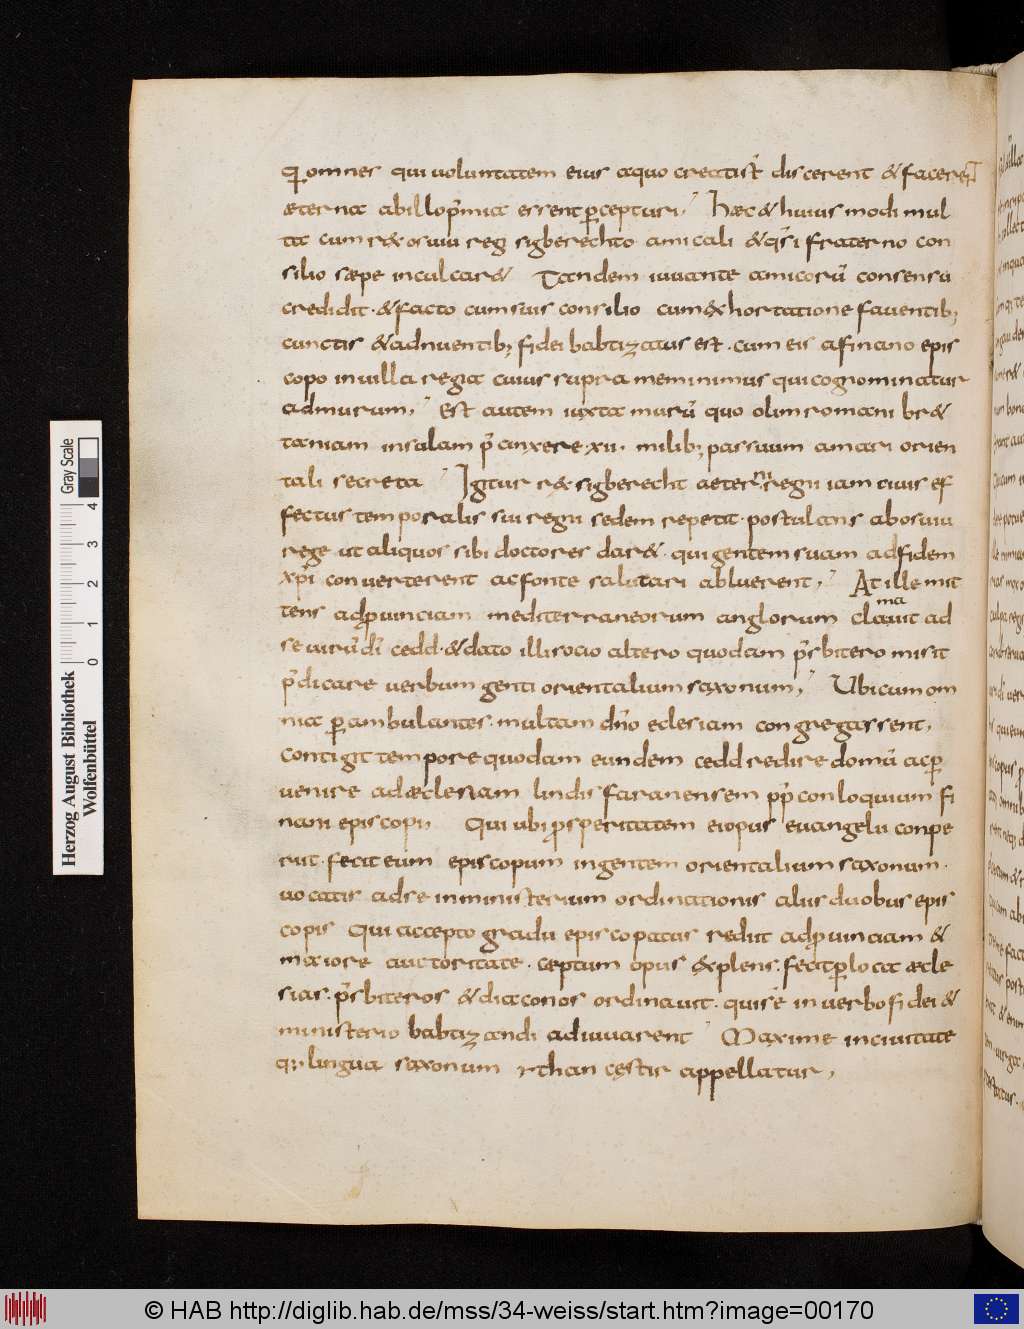 qđ omnes qui voluntatem eius aquo creati sт̄ discerent & facerent
æterna ab illo p̄mia essent ꝑcepturi; Hæc & huiusmodi mul
ta cum rex osuiu regi sigberechto amicali & qͣsi fraterno con
silio sæpe inculcar& Tandem iuuante amicorū consensu
credidit · & facto cum suis consilio cum exhortatione fauentib;
cunctis & adnuentib; fidei babtizatus est · cum eis a finano epis
copo in uilla regia cuius supra meminimus qui cognominatur
admurum; Est autem iuxta murū quo olim romani br&
taniam insulam p̄canxere · xii · milib; passuum a mari orien
tali secreta Igitur rex sigberecht aeterni regni iam ciuis ef
fectus temporalis sui regni sedem repetit · postulans ab osuiu
rege ut aliquos sibi doctores dar& · qui gentem suam ad fidem
xp̄i conuerterent ac fonte salutari abluerent; At ille mit
tens ad ꝓuinciam mediterraneorum anglorum clamauit ad
se uirū dī cedd · & dato illi socio altero quodam p̄sbitero misit
p̄dicare uerbum genti orientalium saxonum; Ubi cum om
nia ꝑambulantes · multam dn̄o eclesiam congregassent,
contigit tempore quodam eundem cedd redire domū ac ꝑ
uenire ad æclesiam lindisfaranensem ꝓp̄ conloquium fi
nani episcopi; Qui ubi ꝓsperitatem ei opus euangelii conpe
rit · fecit eum episcopum in gentem orientalium saxonum ·
uocatis ad se in ministerium ordinationis aliis duobus epis
copis Qui accepto gradu episcopatus rediit ad ꝓuinciam &
maiore auctoritate · ceptum opus explens · fecit ꝑ loca æcle
sias · p̄sbiteros & diaconos ordinauit · qui se in uerbo fidei &
ministerio babtizandi adiuuarent Maxime in ciuitate
quę lingua saxonum ythancęstir appellatur,
Herzog August Bibliothek
Wolfenbüttel
Gray Scale
0 1 2 3 4
© HAB http://diglib.hab.de/mss/34-weiss/start.htm?image=00170